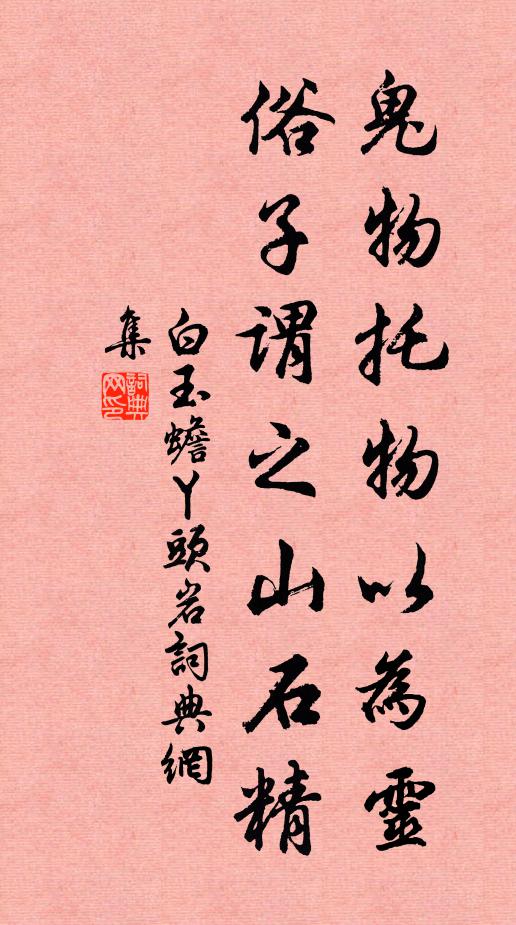 鬼物托物以為靈
俗子謂之山石精
白玉蟾丫頭岩詞典網
集
詞典網印